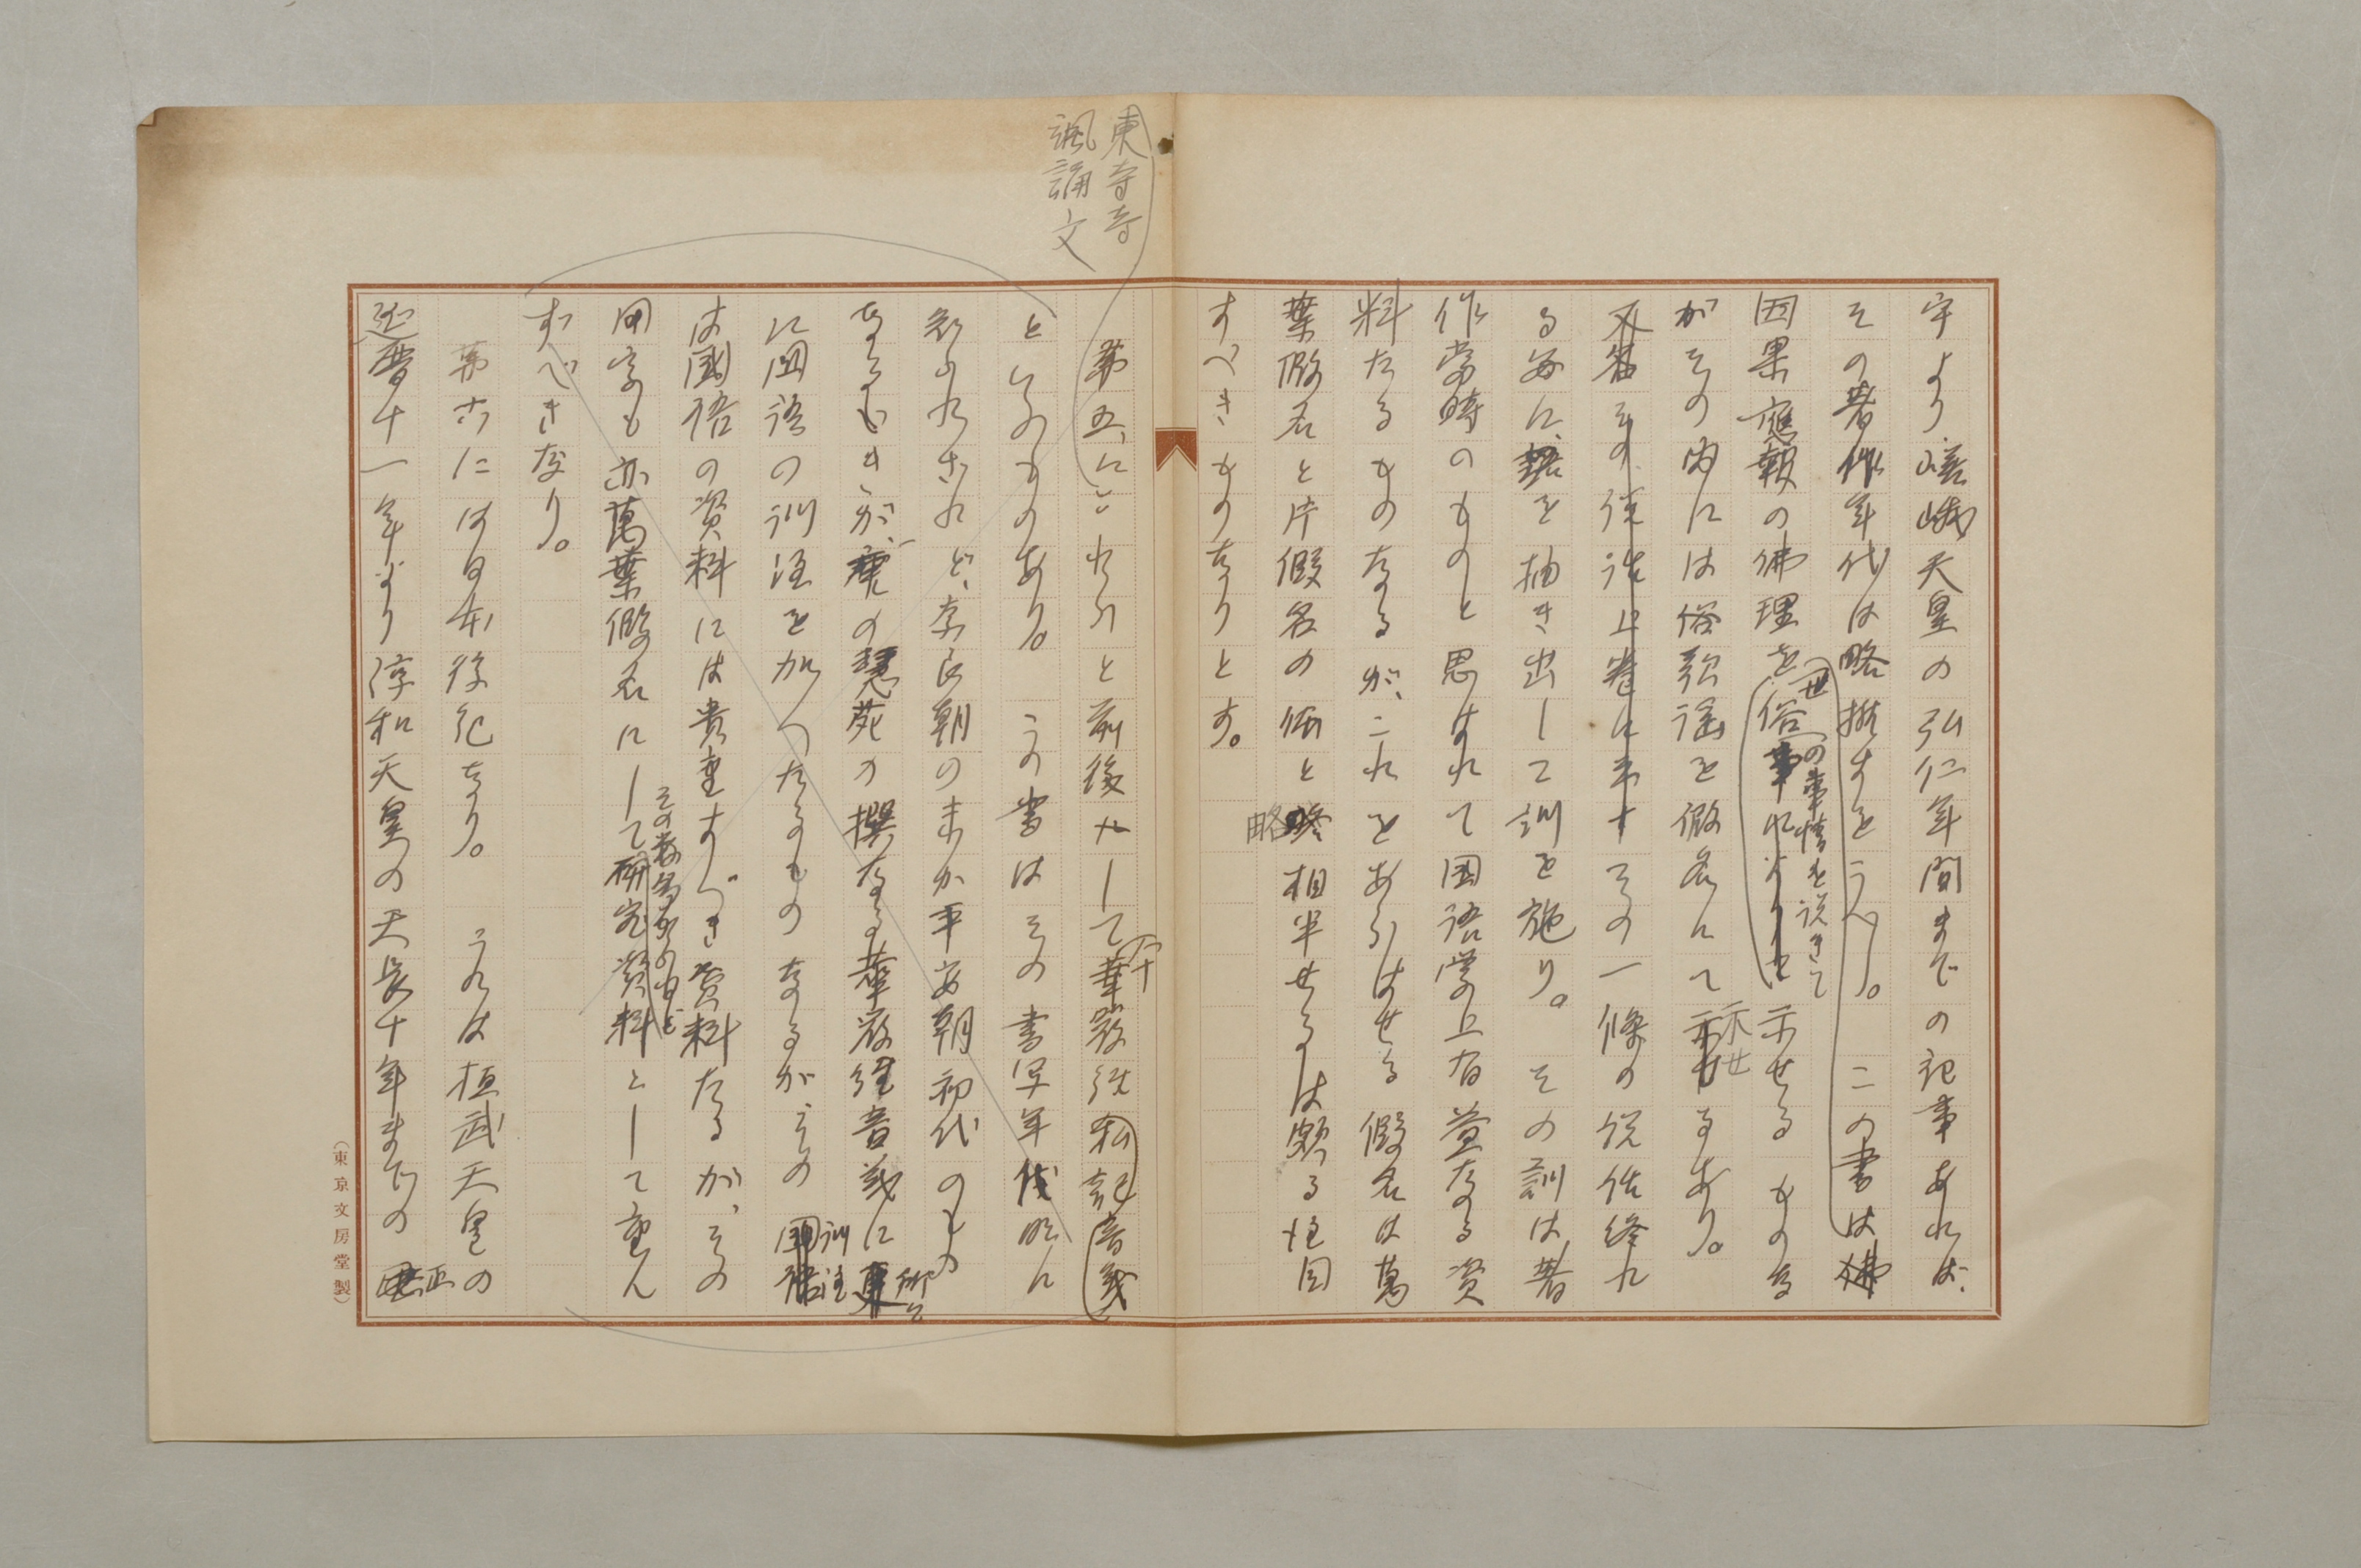 宇より嵯峨天皇の弘仁年間までの記事あれば、
その著作年代は略推すをうべし。この書は佛
因果應報の佛理を俗事によりて示せるものな
世の事情を説きて
がその内には俗歌謡を假名にて示せるあり。
示せ
又各その後語上巻に未すその一條の説話終れ
る毎に、語を抽き出して訓を施り。その訓は著
作當時のものと思はれて国語学上有益なる資
料たるものなるが、これをあらはせる假名は萬
葉假名と片假名の体と略相半せるは頗る注目
略
すべきものなりとす。
東寺寺
諷誦文
第五、にこれらと前後して華嚴経私記音義
といふものあり。この書はその書写年代明に
知られざれど、奈良朝の末か平安朝初代のもの
なるべきが、唐の慧苑の撰なる華嚴経音義に
に国語の訓注を加へたるものなるが、その国語
訓注
は國語の資料には貴重すべき資料たるが、その
用字も亦萬葉假名にして研究資料として重ん
すべきなり。
第六には日本後紀なり。これは桓武天皇の
延暦十一年より淳和天皇の天長十年までの
正
(東京文房堂製)